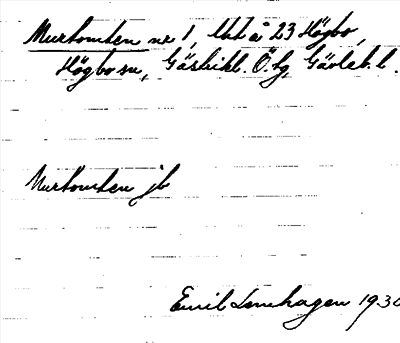 Murtomten nr 1, lht å 23 Högbo,
Högbo sn, Gästrikl. Ö. tg, Gävleb. l.
Murtomten jb
Emil Lenhagen 193